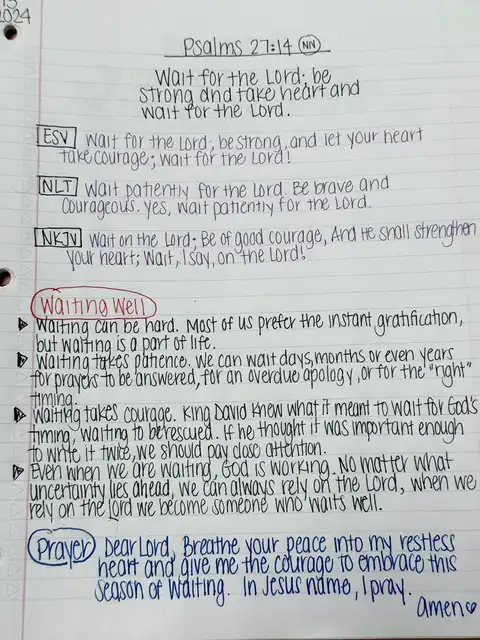 2024
Psalms 27:14 NIV
Wait for the Lord; be
strong and take heart and
wait for the Lord.
ESV Wait for the Lord; be strong, and let your heart
take courage; wait for the Lord!
NLT Wait patiently for the Lord. Be brave and
courageous. Yes, wait patiently for the Lord.
NKJV Wait on the Lord; Be of good courage, And He shall strengthen
your heart; Wait, I say, on the Lord!
Waiting Well
Waiting can be hard. Most of us prefer the instant gratification,
but waiting is a part of life.
Waiting takes patience. We can wait days, months or even years
for prayers to be answered, for an overdue apology, or for the "right"
timing.
Waiting takes courage. King David knew what it meant to wait for God's
timing, waiting to be rescued. If he thought it was important enough
to write it twice, we should pay close attention.
Even when we are waiting, God is working. No matter what
uncertainty lies ahead, we can always rely on the Lord, when we
rely on the lord we become someone who waits well.
Prayer Dear Lord, Breathe your peace into my restless
heart and give me the courage to embrace this
season of waiting. In Jesus name, I pray.
amen